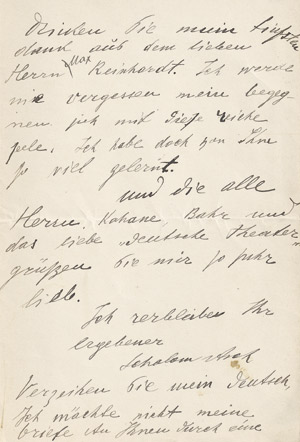 Richten Sie mein tiefsten
dank aus dem lieben
Herrn Max Reinhardt. Ich werde
nie vergessen mein begeg-
nen sich mit diese
Ich habe doch von Ihm
so viel gelernt.
und die alle
Herrn. Kahane Bahr und
das liebe "deutsche theater"
grüßen Sie mir so sehr
lieb.
Ich verbleibe Ihr
ergebener
Schalom Asch
Verzeihen Sie mein deutsch,
Ich möchte nicht meine
briefe An Ihnen durch eine